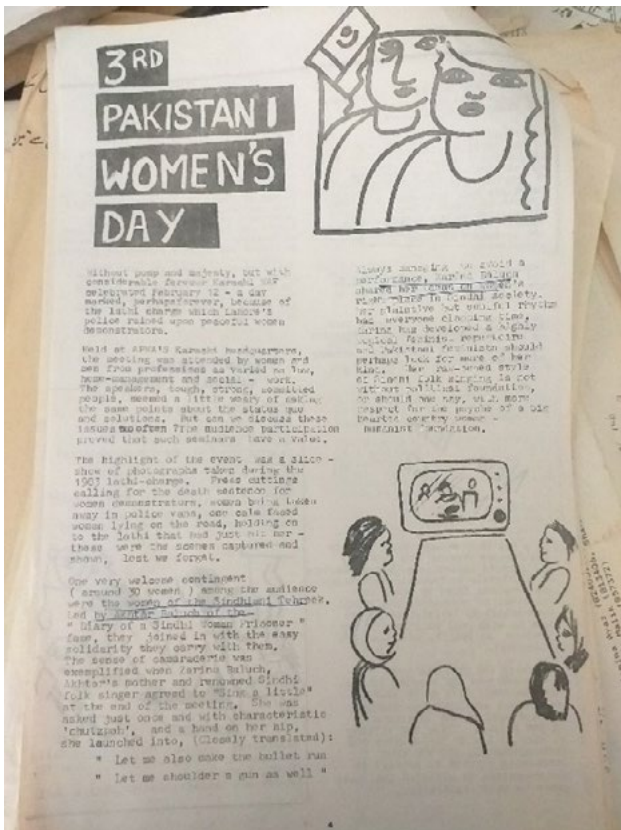 3RD
PAKISTANI
WOMEN'S
DAY
Without pomp and majesty, but with
considerable fervour Karachi WAF
celebrated February 12 - a day
marked, perhaps forever, because of
the lathi charge which Lahore's
police rained upon peaceful women
demonstrators.
Held at APWA'S Karachi headquarters,
the meeting was attended by women and
men from professions as varied as law,
home-management and social - work.
The speakers, tough, strong, committed
people, seemed a little weary of making
the same points about the status quo
and solutions. But can we discuss these
issues too often The audience participation
proved that such seminars have a value.
The highlight of the event was a slide -
show of photographs taken during the
1983 lathi-charge. Press cuttings
calling for the death sentence for
women demonstrators, women being taken
away in police vans, one calm faced
women lying on the road, holding on
to the lathi that had just hit her -
these were the scenes captured and
shown, lest we forget.
One very welcome contingent
( around 30 women ) among the audience
were the women of the Sindhiani Tehreek.
Led by Akhtar Baluch of the
" Diary of a Sindhi Woman Prisoner "
fame, they joined in with the easy
solidarity they carry with them.
The sense of camaraderie was
exemplified when Zarina Baluch,
Akhtar's mother and renowned Sindhi
folk singer agreed to "Sing a little"
at the end of the meeting. She was
asked just once and with characteristic
'chutzpah', and a hand on her hip,
she launched into, (Closely translated):
" Let me also make the bullet run
" Let me shoulder a gun as well "
Always managing to avoid a
performance, Zarina Baluch
shared her
right place in Sindhi society.
Her plaintive but soulful rhythm
had everyone clapping time.
Zarina has developed a highly
feminist repertoire
and Pakistani feminists should
perhaps look for more of her
kind. Her style
of Sindhi folk singing is not
without political foundation,
or should one say, with more
respect for the psyche of a big
hearted country women -
humanist foundation.
4